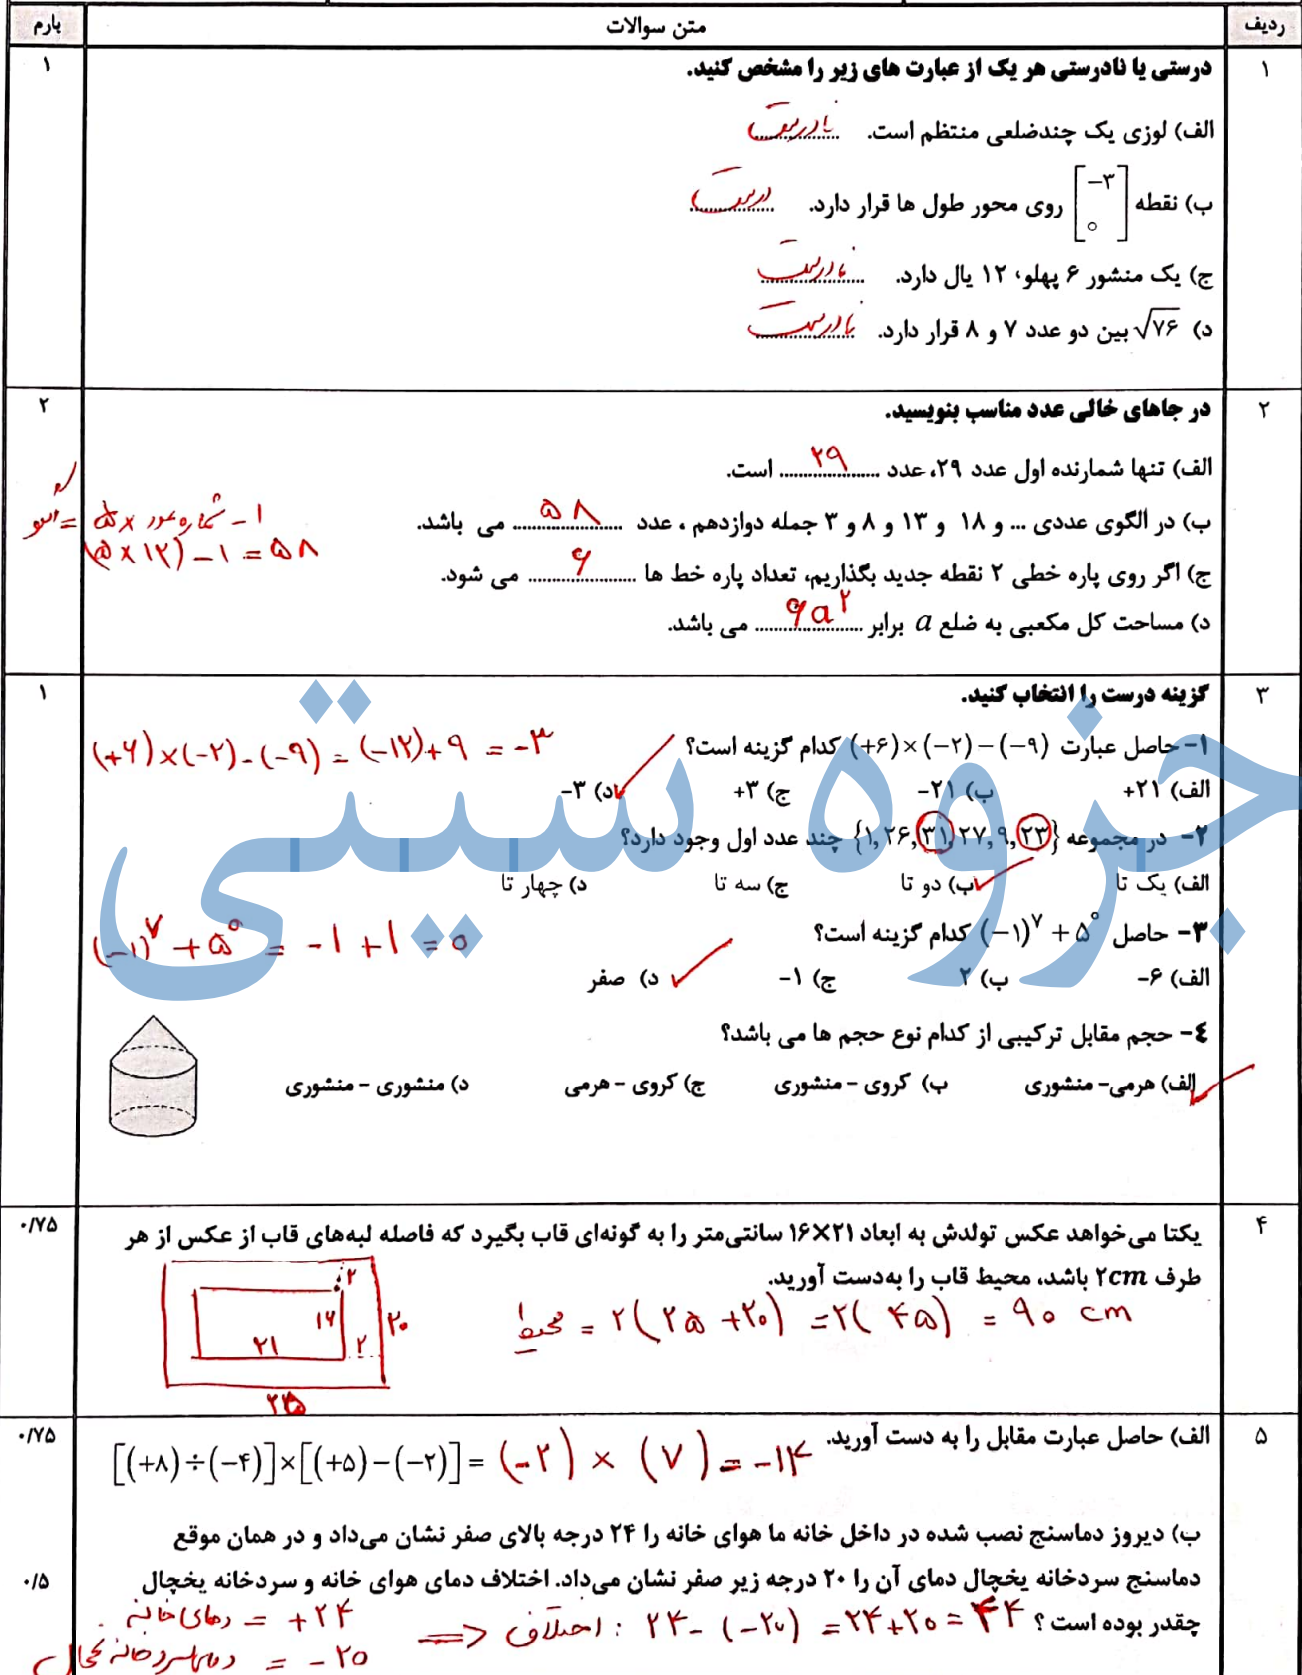 ردیف متن سوالات بارم
۱ درستی یا نادرستی هر یک از عبارت های زیر را مشخص کنید. ۱
الف) لوزی یک چندضلعی منتظم است. نادرست
ب) نقطه [−۳ ۰] روی محور طول ها قرار دارد. درست
ج) یک منشور ۶ پهلو، ۱۲ یال دارد. نادرست
د) √۷۶ بین دو عدد ۷ و ۸ قرار دارد. نادرست
۲ در جاهای خالی عدد مناسب بنویسید. ۲
الف) تنها شمارنده اول عدد ۲۹، عدد ۲۹ است.
ب) در الگوی عددی ... و ۱۸ و ۱۳ و ۸ و ۳ جمله دوازدهم ، عدد ۵۸ می باشد.
(۵×۱۲)−۱=۵۸
ج) اگر روی پاره خطی ۲ نقطه جدید بگذاریم، تعداد پاره خط ها ۶ می شود.
د) مساحت کل مکعبی به ضلع a برابر ۶a² می باشد.
۳ گزینه درست را انتخاب کنید. ۱
۱- حاصل عبارت (+۶)×(−۲)−(−۹) کدام گزینه است؟
(+۶)×(−۲)−(−۹)=(−۱۲)+۹ = −۳
الف) ۲۱+ ب) ۲۱− ج) ۳+ د) ۳−
۲- در مجموعه {۱,۲۶,۳۱,۲۷,۹,۲۳} چند عدد اول وجود دارد؟
الف) یک تا ب) دو تا ج) سه تا د) چهار تا
۳- حاصل (−۱)⁷ + ۵⁰ کدام گزینه است؟
(−۱)⁷ + ۵⁰ = −۱ +۱ = ۰
الف) ۶− ب) ۲ ج) ۱− د) صفر
۴- حجم مقابل ترکیبی از کدام نوع حجم ها می باشد؟
الف) هرمی- منشوری ب) کروی - منشوری ج) کروی - هرمی د) منشوری - منشوری
جزوه سیتی
۴ یکتا می‌خواهد عکس تولدش به ابعاد ۲۱×۱۶ سانتی‌متر را به گونه‌ای قاب بگیرد که فاصله لبه‌های قاب از عکس از هر ۰/۷۵
طرف ۲cm باشد، محیط قاب را به‌دست آورید.
محیط = ۲(۲۵+۲۰) =۲(۴۵) = ۹۰ cm
۲
۱۶ ۲۰
۲۱ ۲
۲۵
۵ الف) حاصل عبارت مقابل را به دست آورید. ۰/۷۵
[(+۸)÷(−۴)]×[(+۵)−(−۲)]= (−۲) × (۷) = −۱۴
ب) دیروز دماسنج نصب شده در داخل خانه ما هوای خانه را ۲۴ درجه بالای صفر نشان می‌داد و در همان موقع
دماسنج سردخانه یخچال دمای آن را ۲۰ درجه زیر صفر نشان می‌داد. اختلاف دمای هوای خانه و سردخانه یخچال ۰/۵
چقدر بوده است ؟ اختلاف : ۲۴−(−۲۰) =۲۴+۲۰=۴۴
دمای خانه = +۲۴
دمای سردخانه یخچال = −۲۰